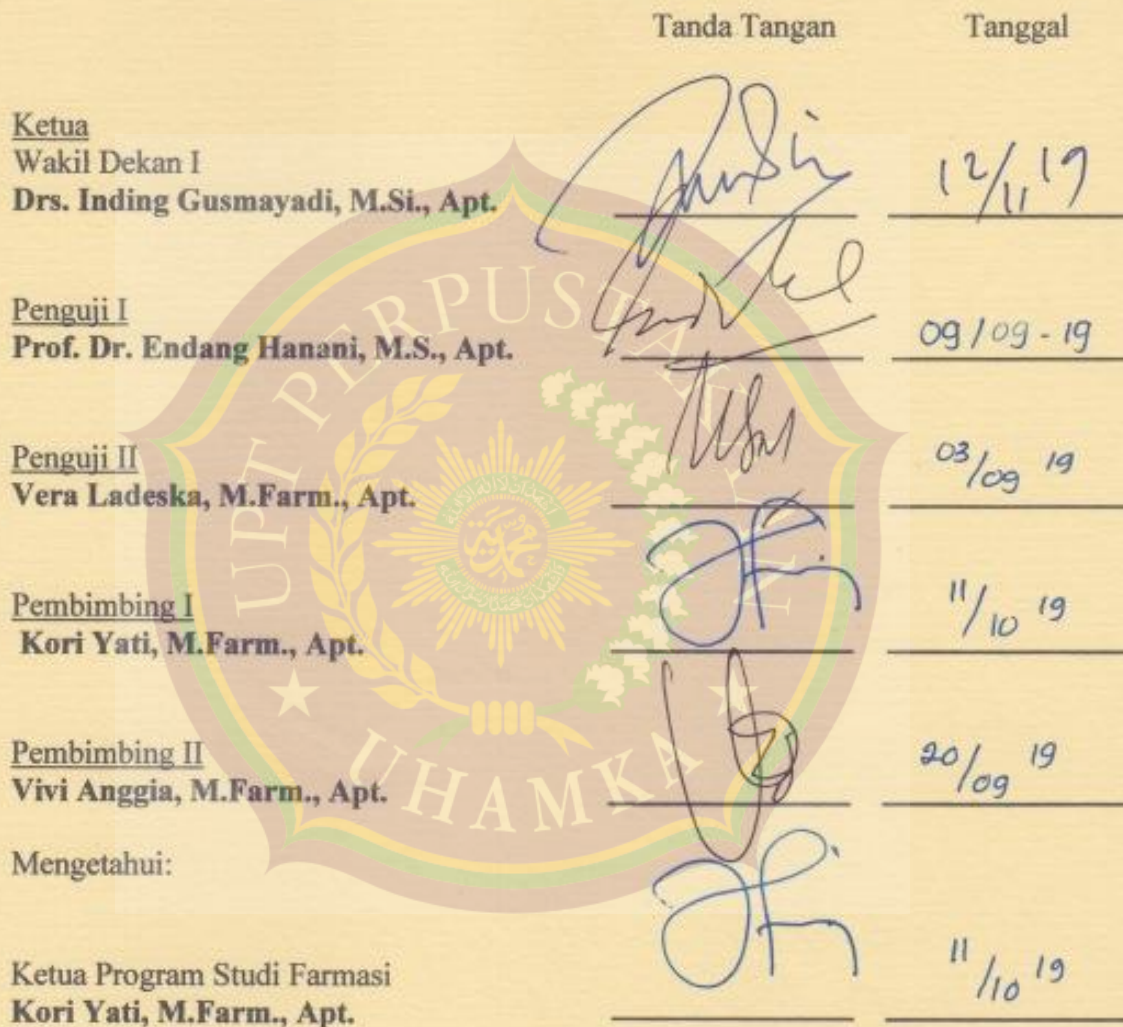 Tanda Tangan Tanggal
Ketua
Wakil Dekan I
Drs. Inding Gusmayadi, M.Si., Apt. 12/11 19
Penguji I
Prof. Dr. Endang Hanani, M.S., Apt. 09/09-19
Penguji II
Vera Ladeska, M.Farm., Apt. 03/09 19
Pembimbing I
Kori Yati, M.Farm., Apt. 11/10 19
Pembimbing II
Vivi Anggia, M.Farm., Apt. 20/09 19
Mengetahui:
Ketua Program Studi Farmasi 11/10 19
Kori Yati, M.Farm., Apt.
UPT PERPUSTAKAAN
UHAMKA